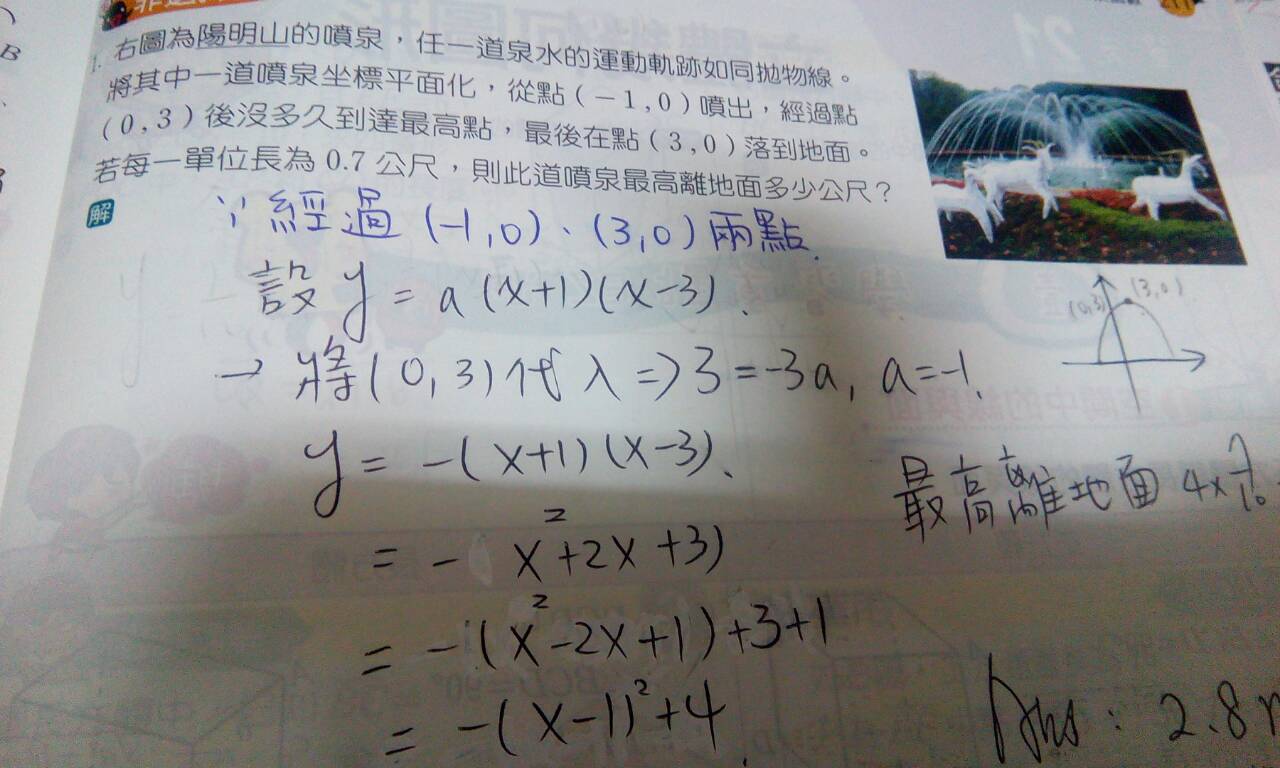 1. 右圖為陽明山的噴泉，任一道泉水的運動軌跡如同拋物線。
將其中一道噴泉坐標平面化，從點(-1,0)噴出，經過點
(0,3)後沒多久到達最高點，最後在點(3,0)落到地面。
若每一單位長為 0.7 公尺，則此道噴泉最高離地面多少公尺？
解
∵ 經過 (-1,0)、(3,0) 兩點.
設 y = a (x+1)(x-3).
→ 將(0,3)代入 => 3 = -3a, a = -1.
y = -(x+1)(x-3).
= - x²+2x+3)
= -(x²-2x+1)+3+1
= -(x-1)²+4.
(0,3)
(3,0)
最高離地面 4x 7/10
Ans : 2.8